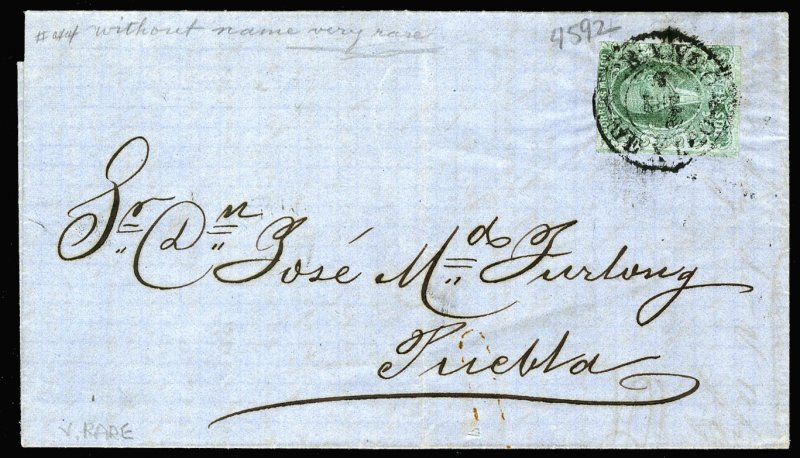 #44 without name very rare
4592
Sr Dn José Ma Furlong
Puebla
V. RARE